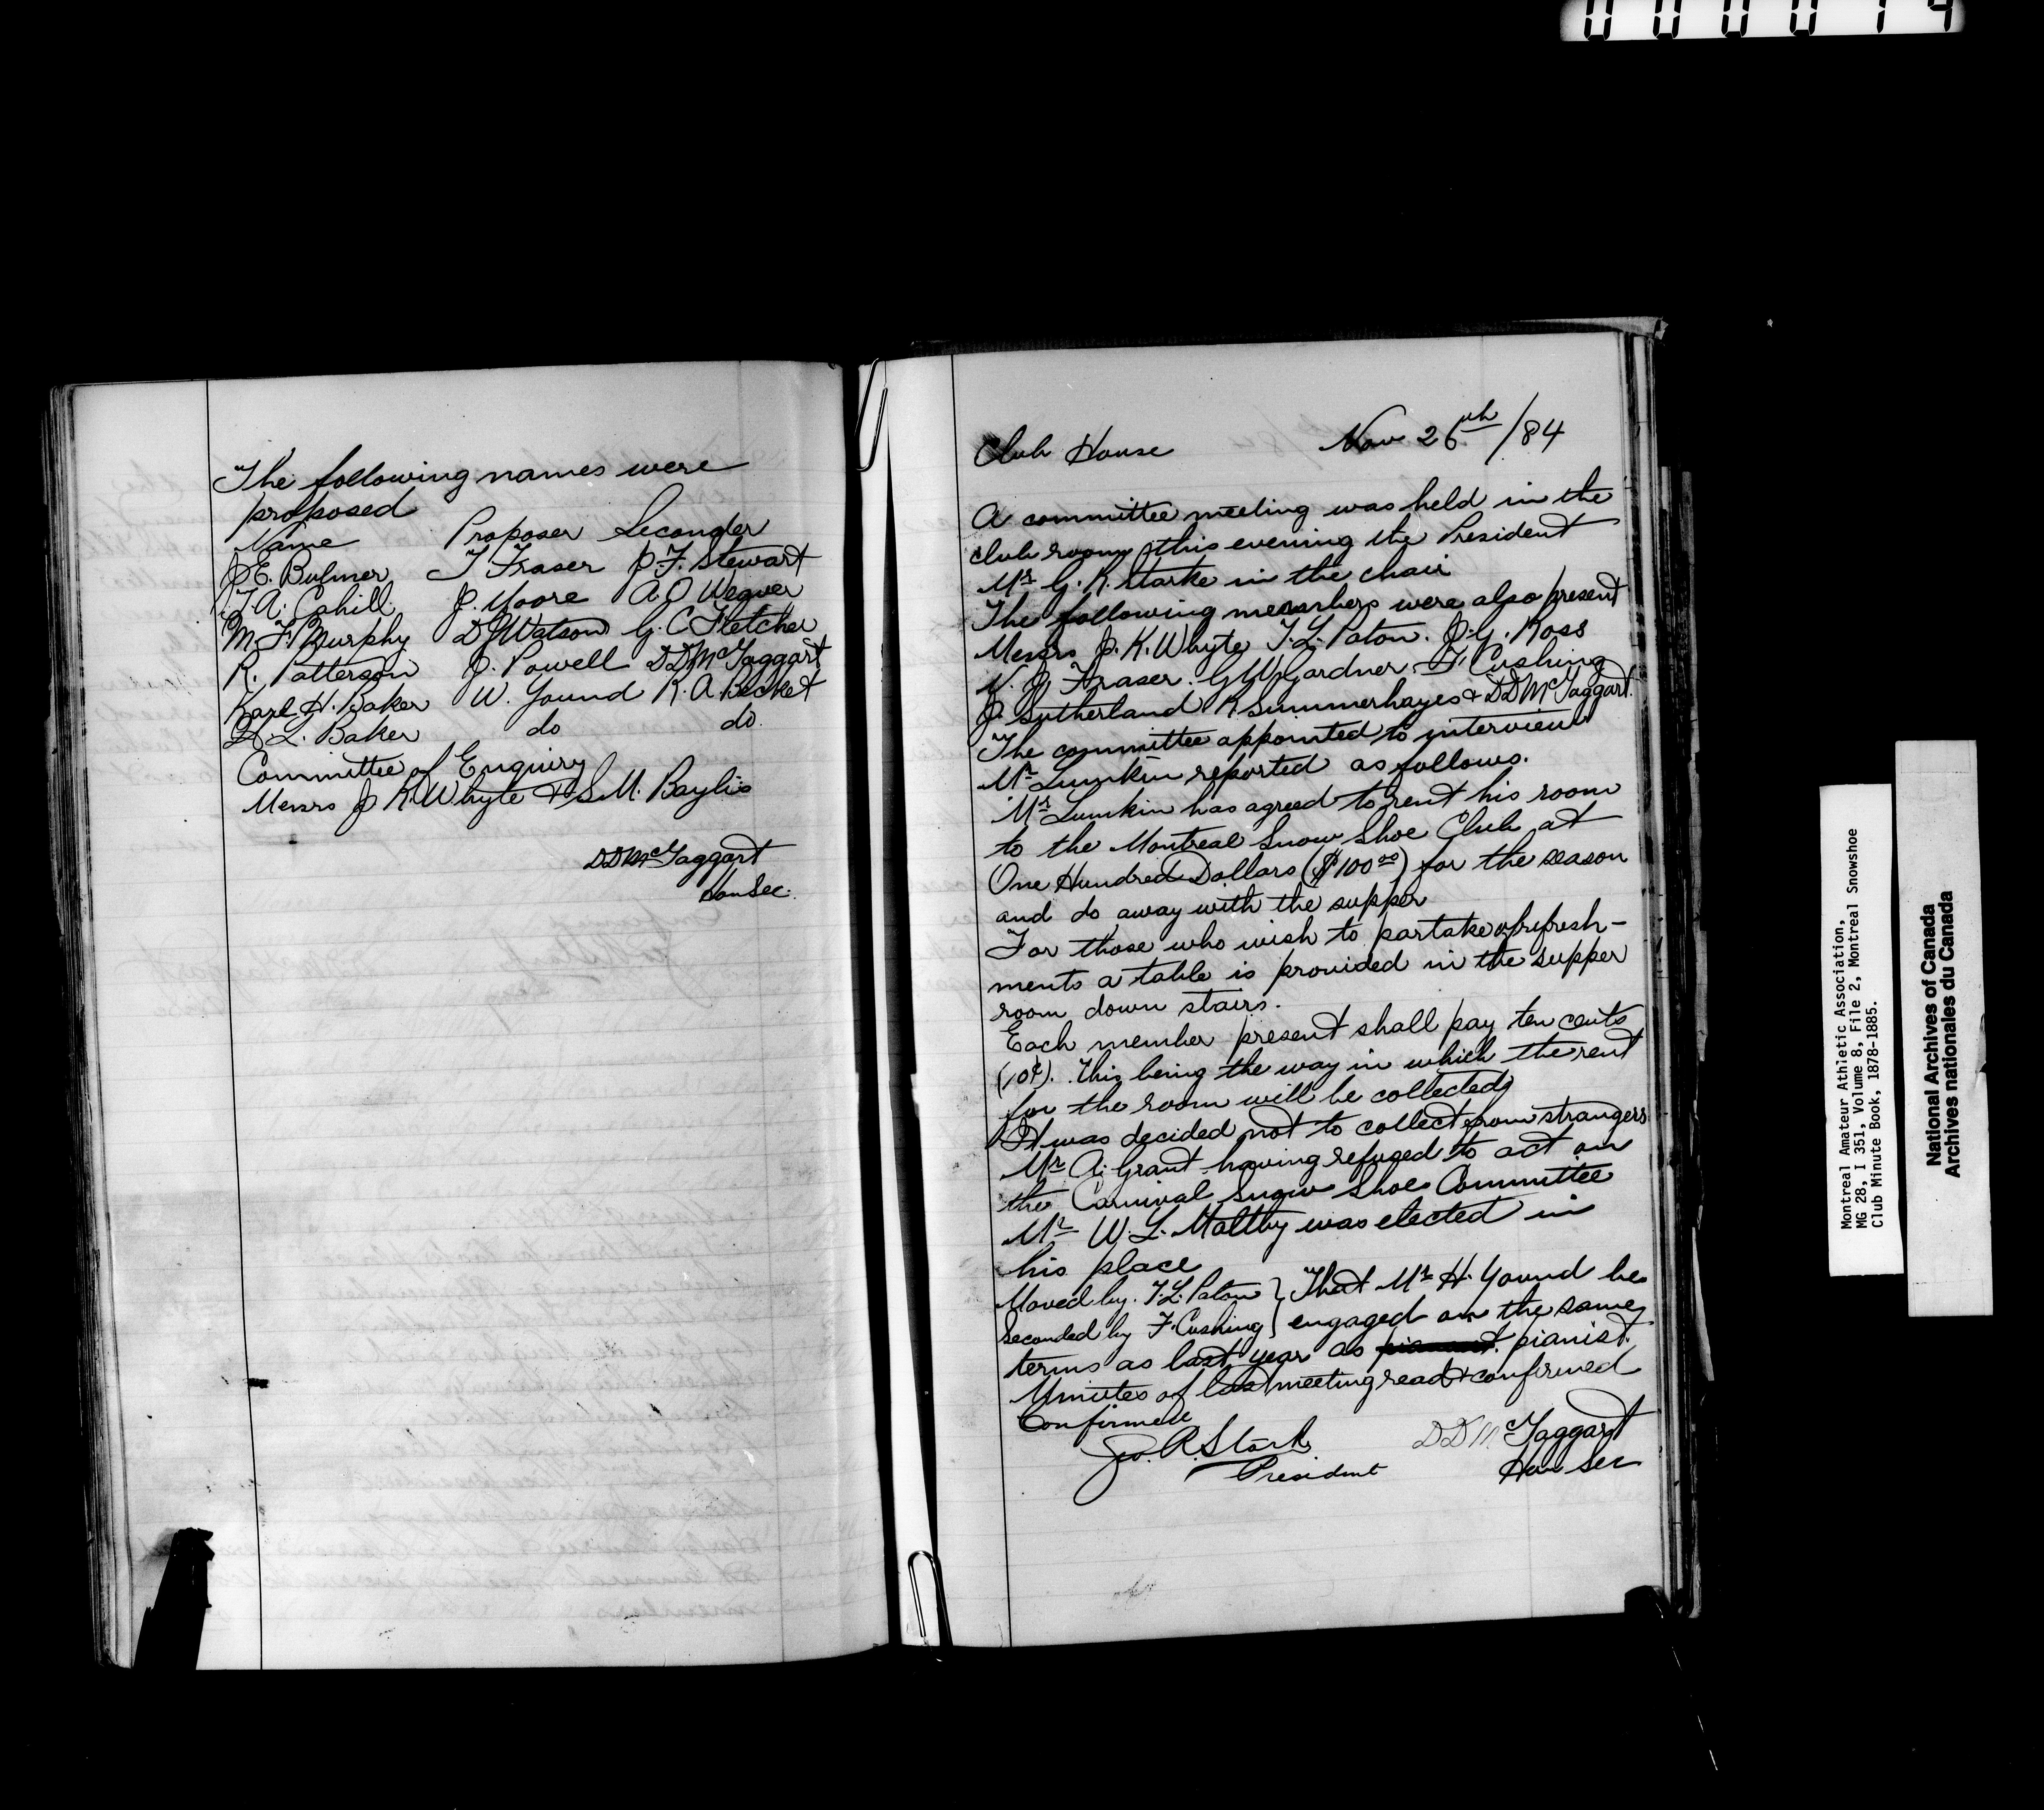 000014
The following names were
proposed
Name Proposer Seconder
J E. Bulmer T Fraser J. F. Stewart
T. A. Cahill J. Moore A. O Wegner
M F. Murphy D J Watson G. C Fletcher
R. Patterson J. Powell D D McTaggart
Karl H. Baker W. Yound R. A. Becket
L. Baker do do.
Committee of Enquiry
Messrs J K. Whyte & S. M. Baylis
D D McTaggart
Hon Sec.
Club House Nov 26th/84
A committee meeting was held in the
club room this evening the President
Mr G. R. Starke in the chair
The following members were also present
Messrs J. K. Whyte T. L. Paton. J. G. Ross
N. J. Fraser. G W Gardner. F. Cushing
J. Sutherland R Summerhayes & D D McTaggart.
The committee appointed to interview
Mr Lumkin reported as follows.
Mr Lumkin has agreed to rent his room
to the Montreal Snow Shoe Club at
One Hundred Dollars ($100 00) for the season
and do away with the supper
For those who wish to partake of refresh-
ments a table is provided in the supper
room down stairs.
Each member present shall pay ten cents
(10¢). This being the way in which the rent
for the room will be collected
It was decided not to collect from strangers
Mr A. Grant having refused to act on
the Carnival Snow Shoe Committee
Mr W. L. Maltby was elected in
his place
Moved by. T. L. Paton } That Mr H. Yound be
Seconded by F. Cushing } engaged on the same
terms as last year as pianist.
Minutes of last meeting read & confirmed
Confirmed
Geo. R. Starke D D McTaggart
President Hon Sec
Montreal Amateur Athletic Association,
MG 28, I 351, Volume 8, File 2, Montreal Snowshoe
Club Minute Book, 1878-1885.
National Archives of Canada
Archives nationales du Canada